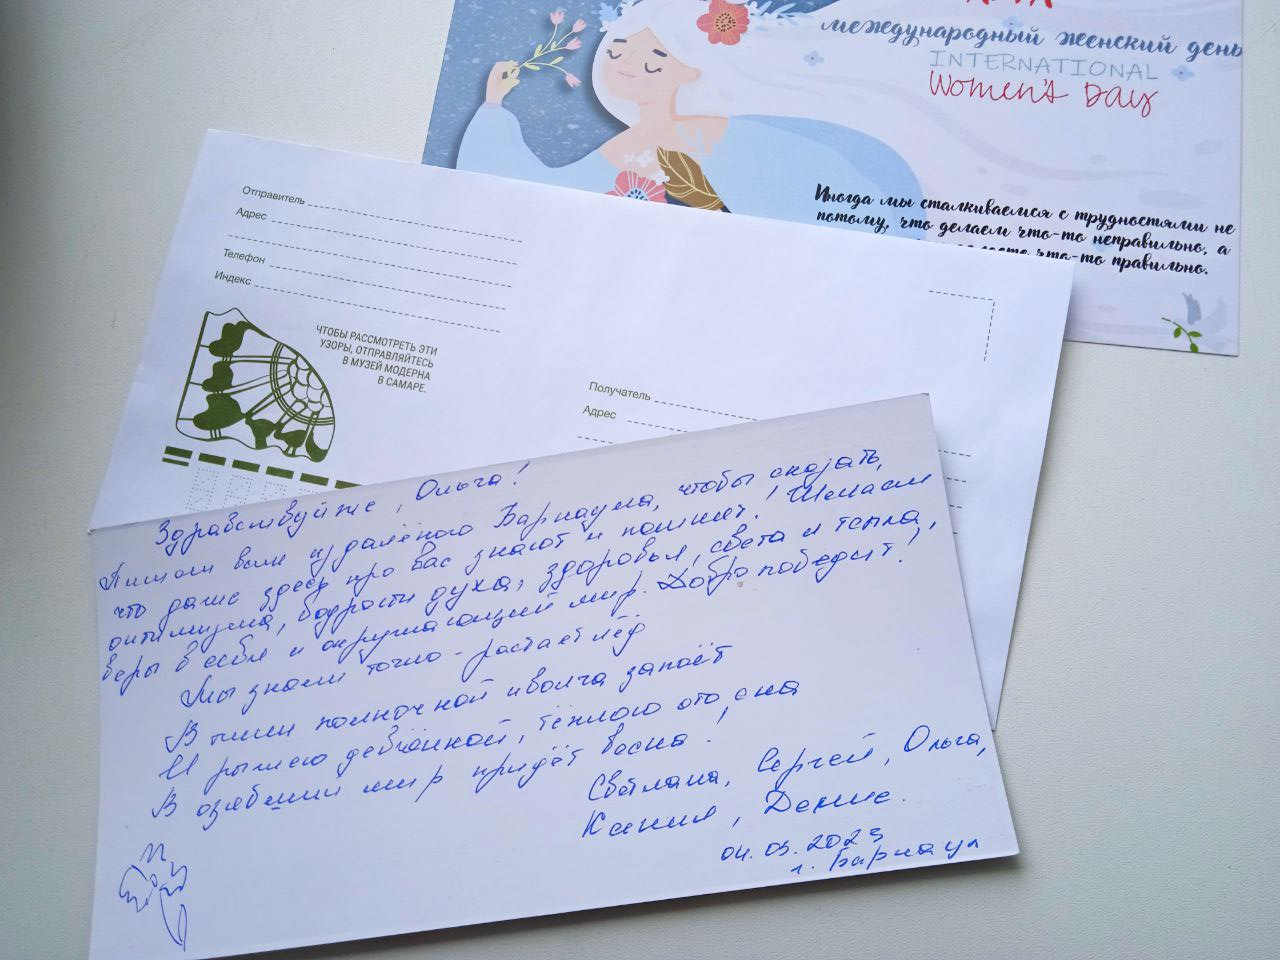 международный женский день
INTERNATIONAL
Women's Day
Иногда мы сталкиваемся с трудностями не
потому, что делаем что-то неправильно, а
что-то правильно.
Отправитель
Адрес
Телефон
Индекс
ЧТОБЫ РАССМОТРЕТЬ ЭТИ
УЗОРЫ, ОТПРАВЛЯЙТЕСЬ
В МУЗЕЙ МОДЕРНА
В САМАРЕ.
Получатель
Адрес
Здравствуйте, Ольга!
Пишем вам из далёкого Барнаула, чтобы сказать,
что даже здесь про Вас знают и помнят! Желаем
оптимизма, бодрости духа, здоровья, света и тепла,
веры в себя и окружающий мир. Добро победит!
Мы знаем точно - растает лёд
В тиши полночной иволга запоёт
И рыжею девчонкой, тёплою ото сна
В озябший мир придёт весна!
Светлана, Сергей, Ольга,
Ксения, Денис.
04.03.2023
г. Барнаул